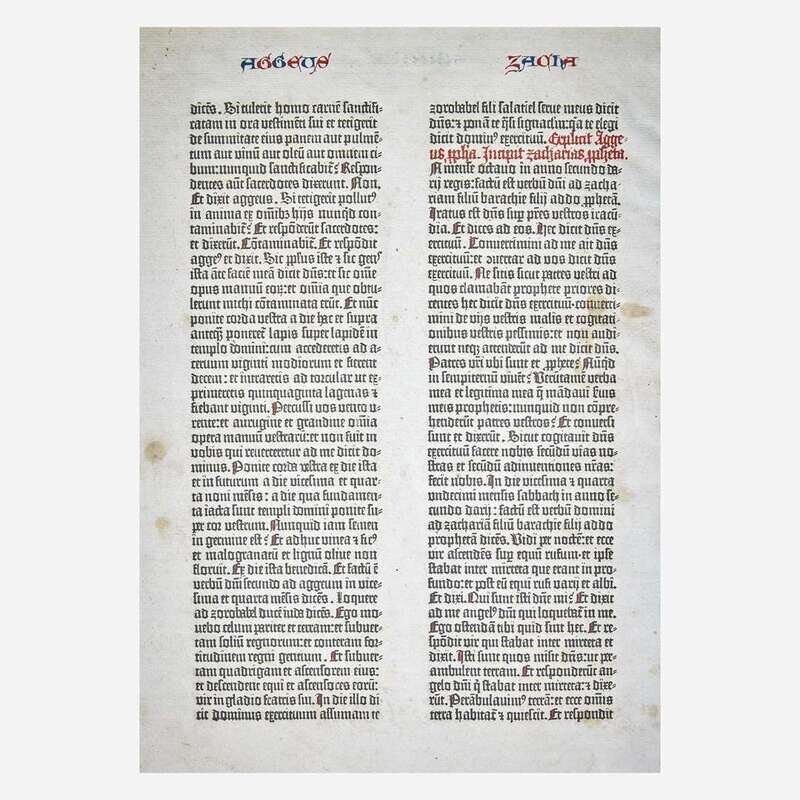 AGGEUS
ZACHA
dicēs. Si tulerit homo carnē sanctifi-
catam in ora vestimēti sui et tetigerit
de summitate eius panem aut pulmē-
tum aut vinū aut oleū aut omnem ci-
bum: nunquid sanctificabit᷑? Respon-
dentes aūt sacerdotes dixerunt. Non.
Et dixit aggeus. Si tetigerit pollutꝰ
in anima ex omībꝫ hijs nunqd con-
taminabit᷑? Et respōderūt sacerdotes:
et dixerūt. Cōtaminabit᷑. Et respōdit
aggeꝰ et dixit. Sic ppl̄us iste ⁊ sic gens
ista āte faciē meā dicit dn̄s: et sic om̄e
opus manuū eoꝝ: et omnia que obtu-
lerunt michi cōtaminata erūt. Et nūc
ponite corda vestra a die hac et supra
anteqꝫ poneret᷑ lapis super lapidē in
templo domini: cum accederetis ad a-
cervum viginti modiorum et fierent
decem: et intraretis ad torcular ut ex-
primeretis quinquaginta lagenas ⁊
fiebant viginti. Percussi vos vento u-
rente: et aurugine et grandine om̄ia
opera manuū vestrarū: et non fuit in
vobis qui reverteretur ad me dicit do-
minus. Ponite corda vestra ex die ista
et in futurum a die vicesima et quar-
ta noni mēsis: a die qua fundamen-
ta iacta sunt templi domini ponite su-
per cor vestrum. Nunquid iam semen
in germine est? Et adhuc vinea ⁊ ficꝰ
et malogranatū et lignū olive non
floruit. Ex die ista benedicā. Et factū ē
verbū dn̄i secundo ad aggeum in vice-
sima et quarta mēsis dicēs. Loquere
ad zorobabel ducē iuda dicēs. Ego mo-
vebo celum pariter et terram: et subver-
tam soliū regnorum: et conteram for-
titudinem regni gentium. Et subver-
tam quadrigam et ascensorem eius:
et descendent equi et ascensores eorū:
vir in gladio fratris sui. In die illo di-
cit dominus exercituum assumam te
zorobabel fili salatiel serve meus dicit
dn̄s: ⁊ ponā te q̄si signaclm̄: qꝛ te elegi
dicit dominꝰ exercituū. Explicit Agge-
us ꝓpha. Incipit zacharias ꝓpheta.
In mense octavo in anno secundo da-
rij regis: factū est verbū dn̄i ad zacha-
riam filiū barachie filij addo ꝓphetā.
Iratus est dn̄s sup̄ pr̄es vestros iracū-
dia. Et dices ad eos. Hec dicit dn̄s ex-
ercituū. Convertimini ad me ait dn̄s
exercituū: et convertar ad vos dicit dn̄s
exercituū. Ne sitis sicut patres vestri ad
quos clamabāt prophete priores di-
centes hec dicit dn̄s exercituū. converti-
mini de vijs vestris malis et cogitati-
onibus vestris pessimis: et non audi-
erunt neqꝫ attenderūt ad me dicit dn̄s.
Patres vr̄i ubi sunt et ꝓphete? Nūqd
in sempiternū vivēt? Verūtamē verba
mea et legitima mea q̄ mādavi servis
meis prophetis: nunquid non cōpre-
henderūt patres vestros? Et conversi
sunt et dixerūt. Sicut cogitavit dn̄s
exercituum facere nobis secūdū vias no-
stras et secūdū adinventiones nr̄as:
fecit nobis. In die vicesima ⁊ quarta
undecimi mensis sabbath in anno se-
cundo darij: factū est verbū domini
ad zachariā filiū barachie filij addo
prophetā dicēs. Vidi per noctē: et ecce
vir ascendēs sup̄ equū rufum: et ipse
stabat inter mirteta que erant in pro-
fundo: et post eū equi rufi varij et albi.
Et dixi. Qui sunt isti dn̄e mi? Et dixit
ad me angelꝰ dn̄i qui loquebat᷑ in me.
Ego ostendā tibi quid sunt hec. Et re-
spōdit vir qui stabat inter mirteta et
dixit. Isti sunt quos misit dn̄s: ut per-
ambulent terram. Et responderūt an-
gelo dn̄i q̄ stabat inter mirteta: ⁊ dixe-
rūt. Perābulavimꝰ terrā: et ecce om̄is
terra habitat᷑ ⁊ quiescit. Et respondit